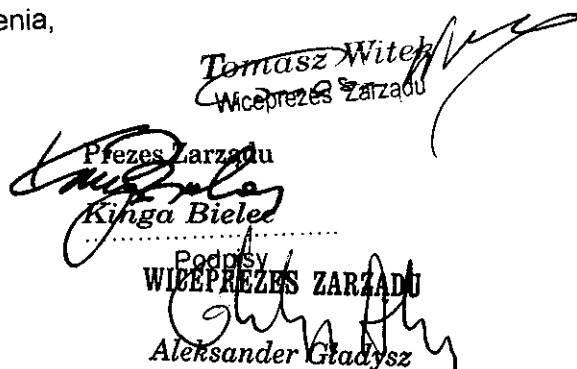 enia,
Tomasz Witek
Wiceprezes Zarządu
Prezes Zarządu
Kinga Bielec
....................................
Podpisy
WICEPREZES ZARZĄDU
Aleksander Gładysz